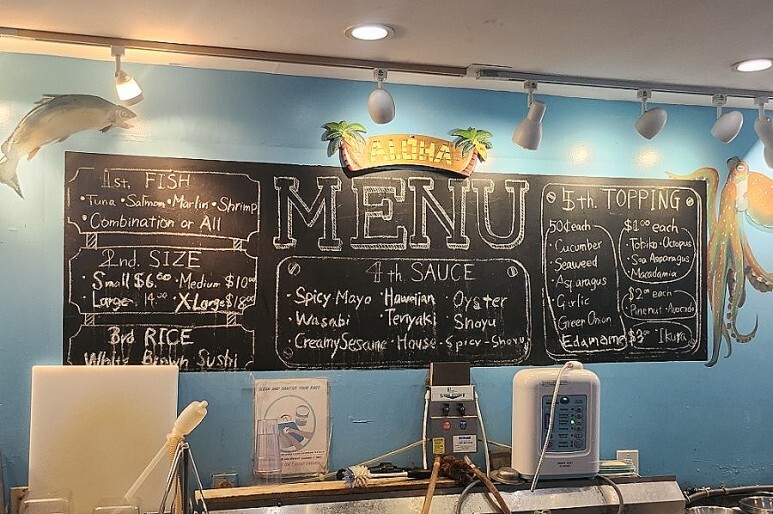 ALOHA
MENU
1st. FISH
• Tuna • Salmon • Marlin • Shrimp
• Combination or All
2nd. SIZE
• Small $6.00 • Medium $10.00
• Large 14.00 • X Large $18.00
3rd RICE
White Brown Sushi
4th SAUCE
• Spicy Mayo • Hawaiian • Oyster
• Wasabi Teriyaki Shoyu
• Creamy Sesame • House • Spicy - Shoyu
5th. TOPPING
50¢ each
• Cucumber
• Seaweed
• Asparagus
• Garlic
• Green Onion
• Edamame
$1.00 each
• Tobiko • Octopus
• Sea Asparagus
• Macadamia
$2.00 each
• Pinenut • Avocado
$3.00 • Ikura